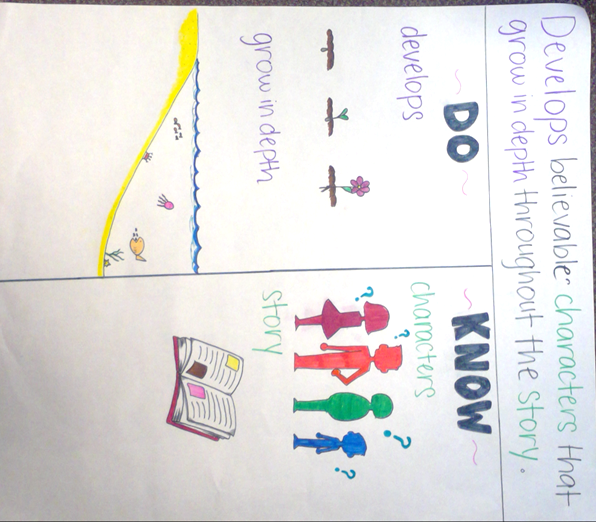 Develops believable characters that
grow in depth throughout the story.
~ DO ~
develops
grow in depth
~ KNOW ~
characters
? ? ? ?
story